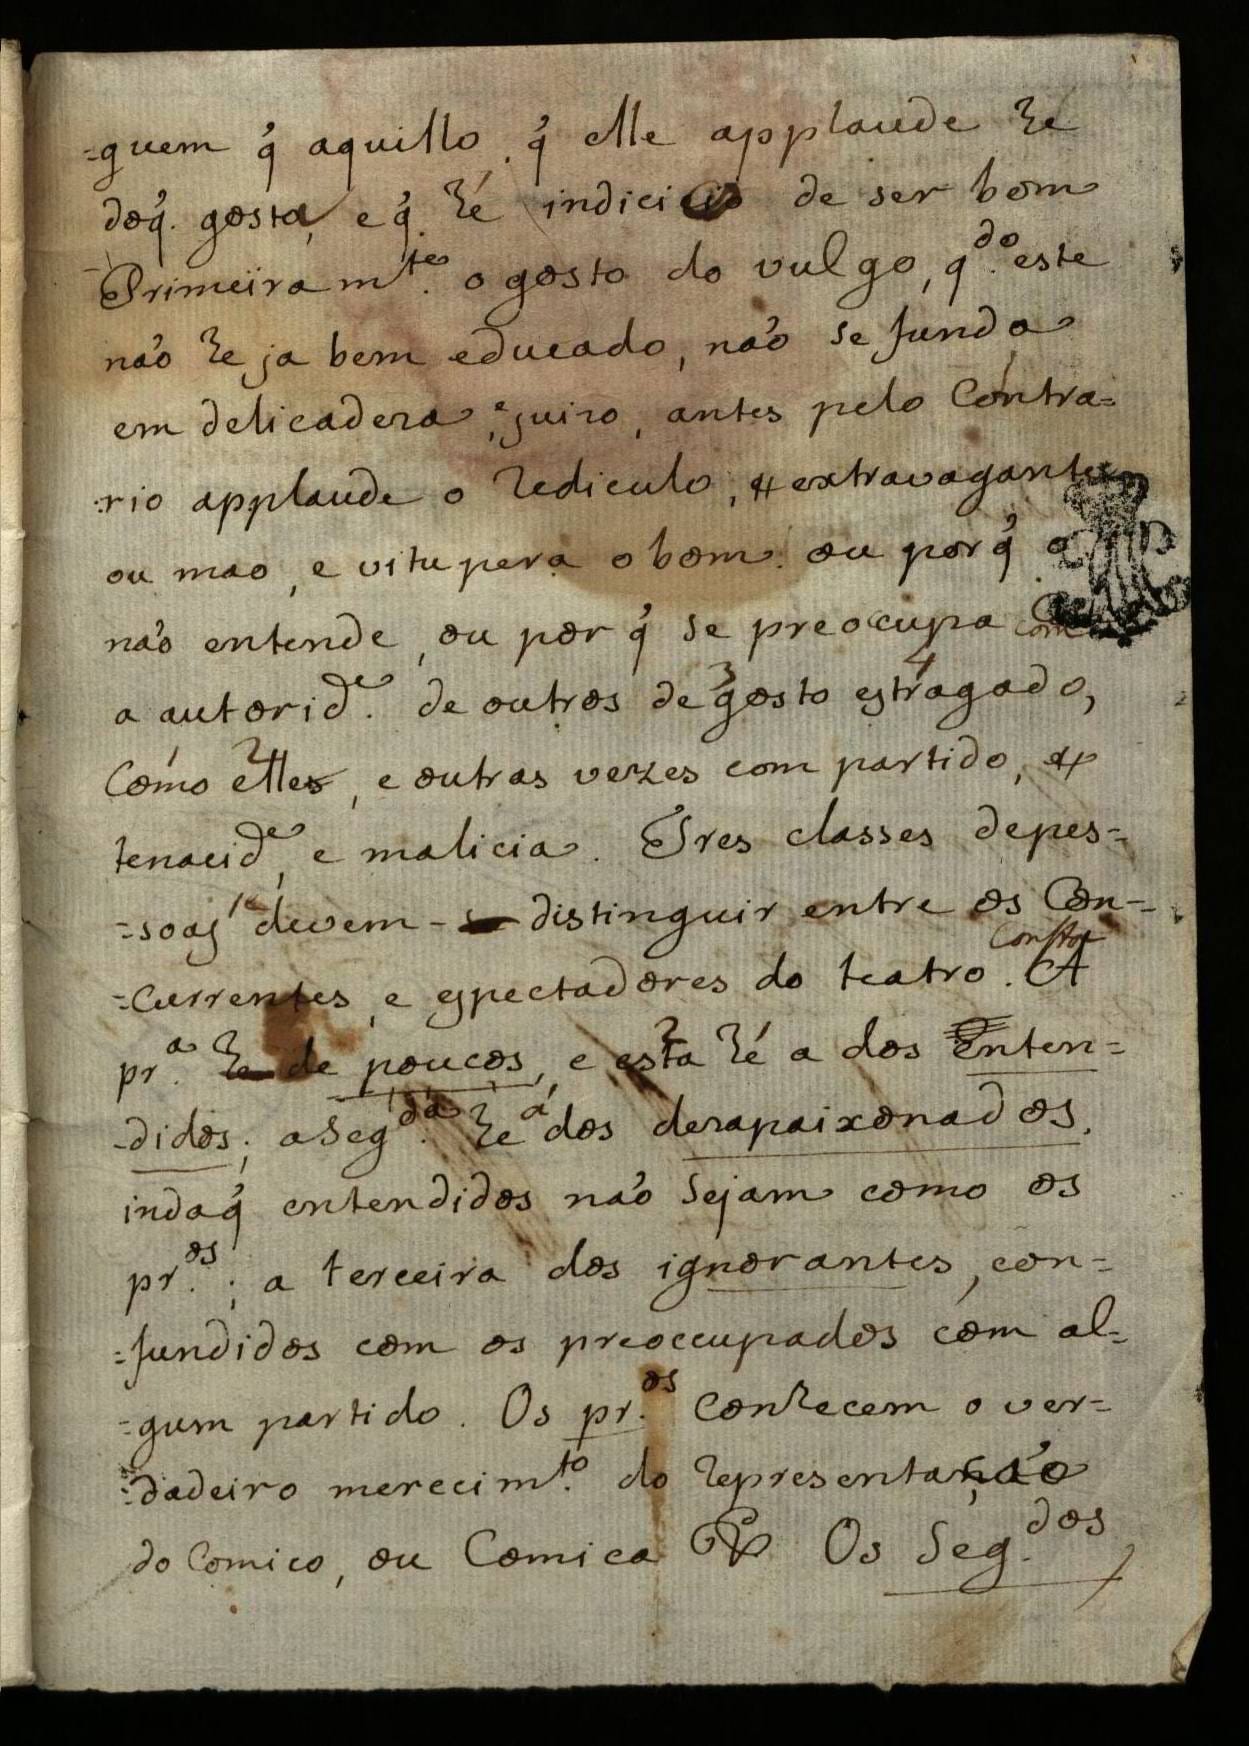 =guem q̃ aquillo q̃ elle applaude he
doq̃. gosta, e q̃ hé indicicio de ser bom
Primeiram.te o gosto do vulgo, q.do este
não he ja bem educado, não se funda
em delicadeza, e juizo, antes pelo contra=
=rio applaude o rediculo, extravagante
ou mao, e vitupera o bom ou por q̃ o
não entende, ou por q̃ se preocupa com
a autorid.e de outros de 3 gosto 4 estragado,
1 Como 2 elles, e outras vezes com partido,
tenacid.e, e malicia. Tres classes depes=
=soas devem-se distinguir entre os Con=
=currentes, e espectadores do teatro. A
pr.a he de poucos, e esta hé a dos Enten=
=didos; a Seg.da he a dos dezapaixonados,
indaq̃ entendidos não sejam como os
pr.os; a terceira dos ignorantes, con=
=fundidos com os preoccupados com al=
=gum partido. Os pr.os conhecem o ver=
=dadeiro merecim.to do representação
do Comico, ou Comica Os Seg.dos